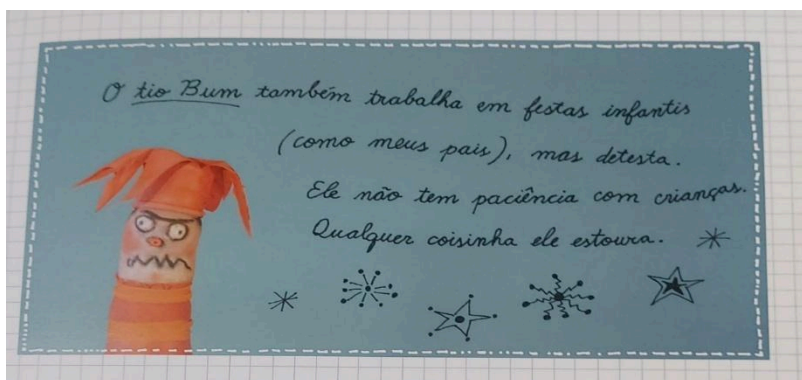 O tio Bum também trabalha em festas infantis
(como meus pais), mas detesta.
Ele não tem paciência com crianças.
Qualquer coisinha ele estoura.